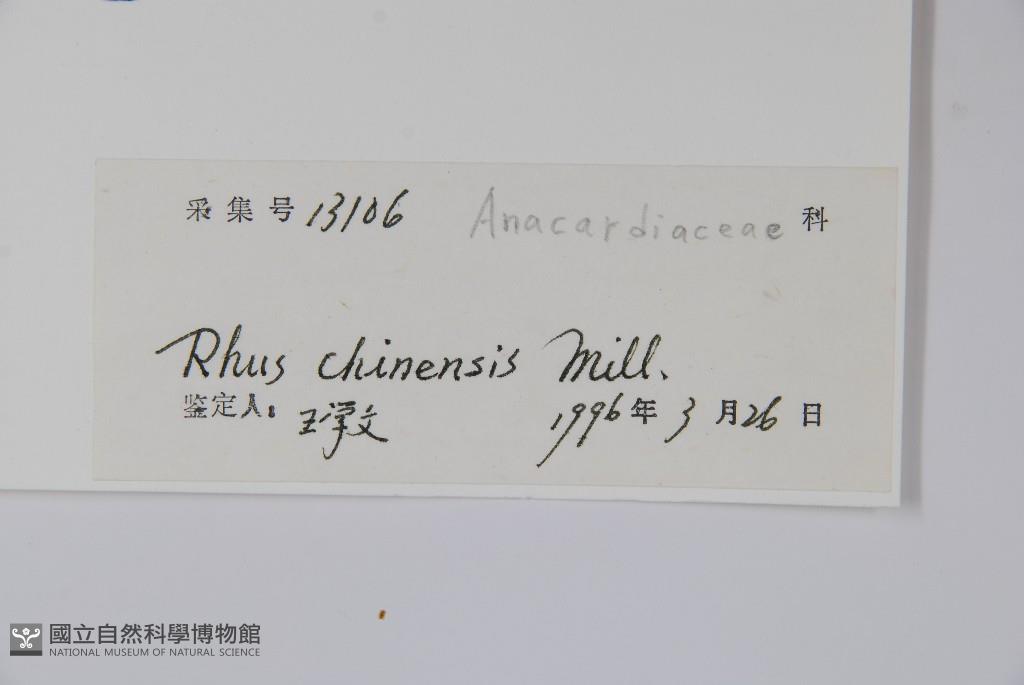 采集号 13106 Anacardiaceae 科
Rhus chinensis Mill.
鉴定人: 王学文 1996 年 3 月 26 日
國立自然科學博物館
NATIONAL MUSEUM OF NATURAL SCIENCE